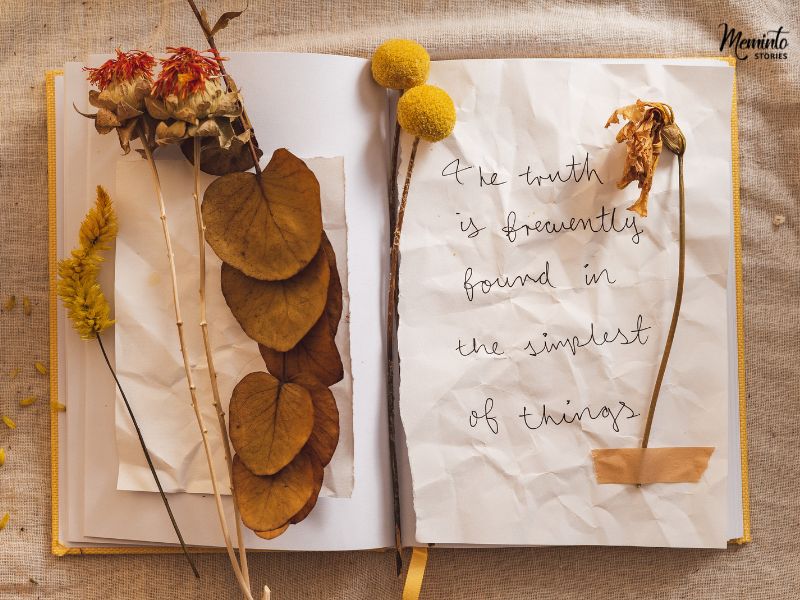 Meminto
STORIES
The truth
is frequently
found in
the simplest
of things